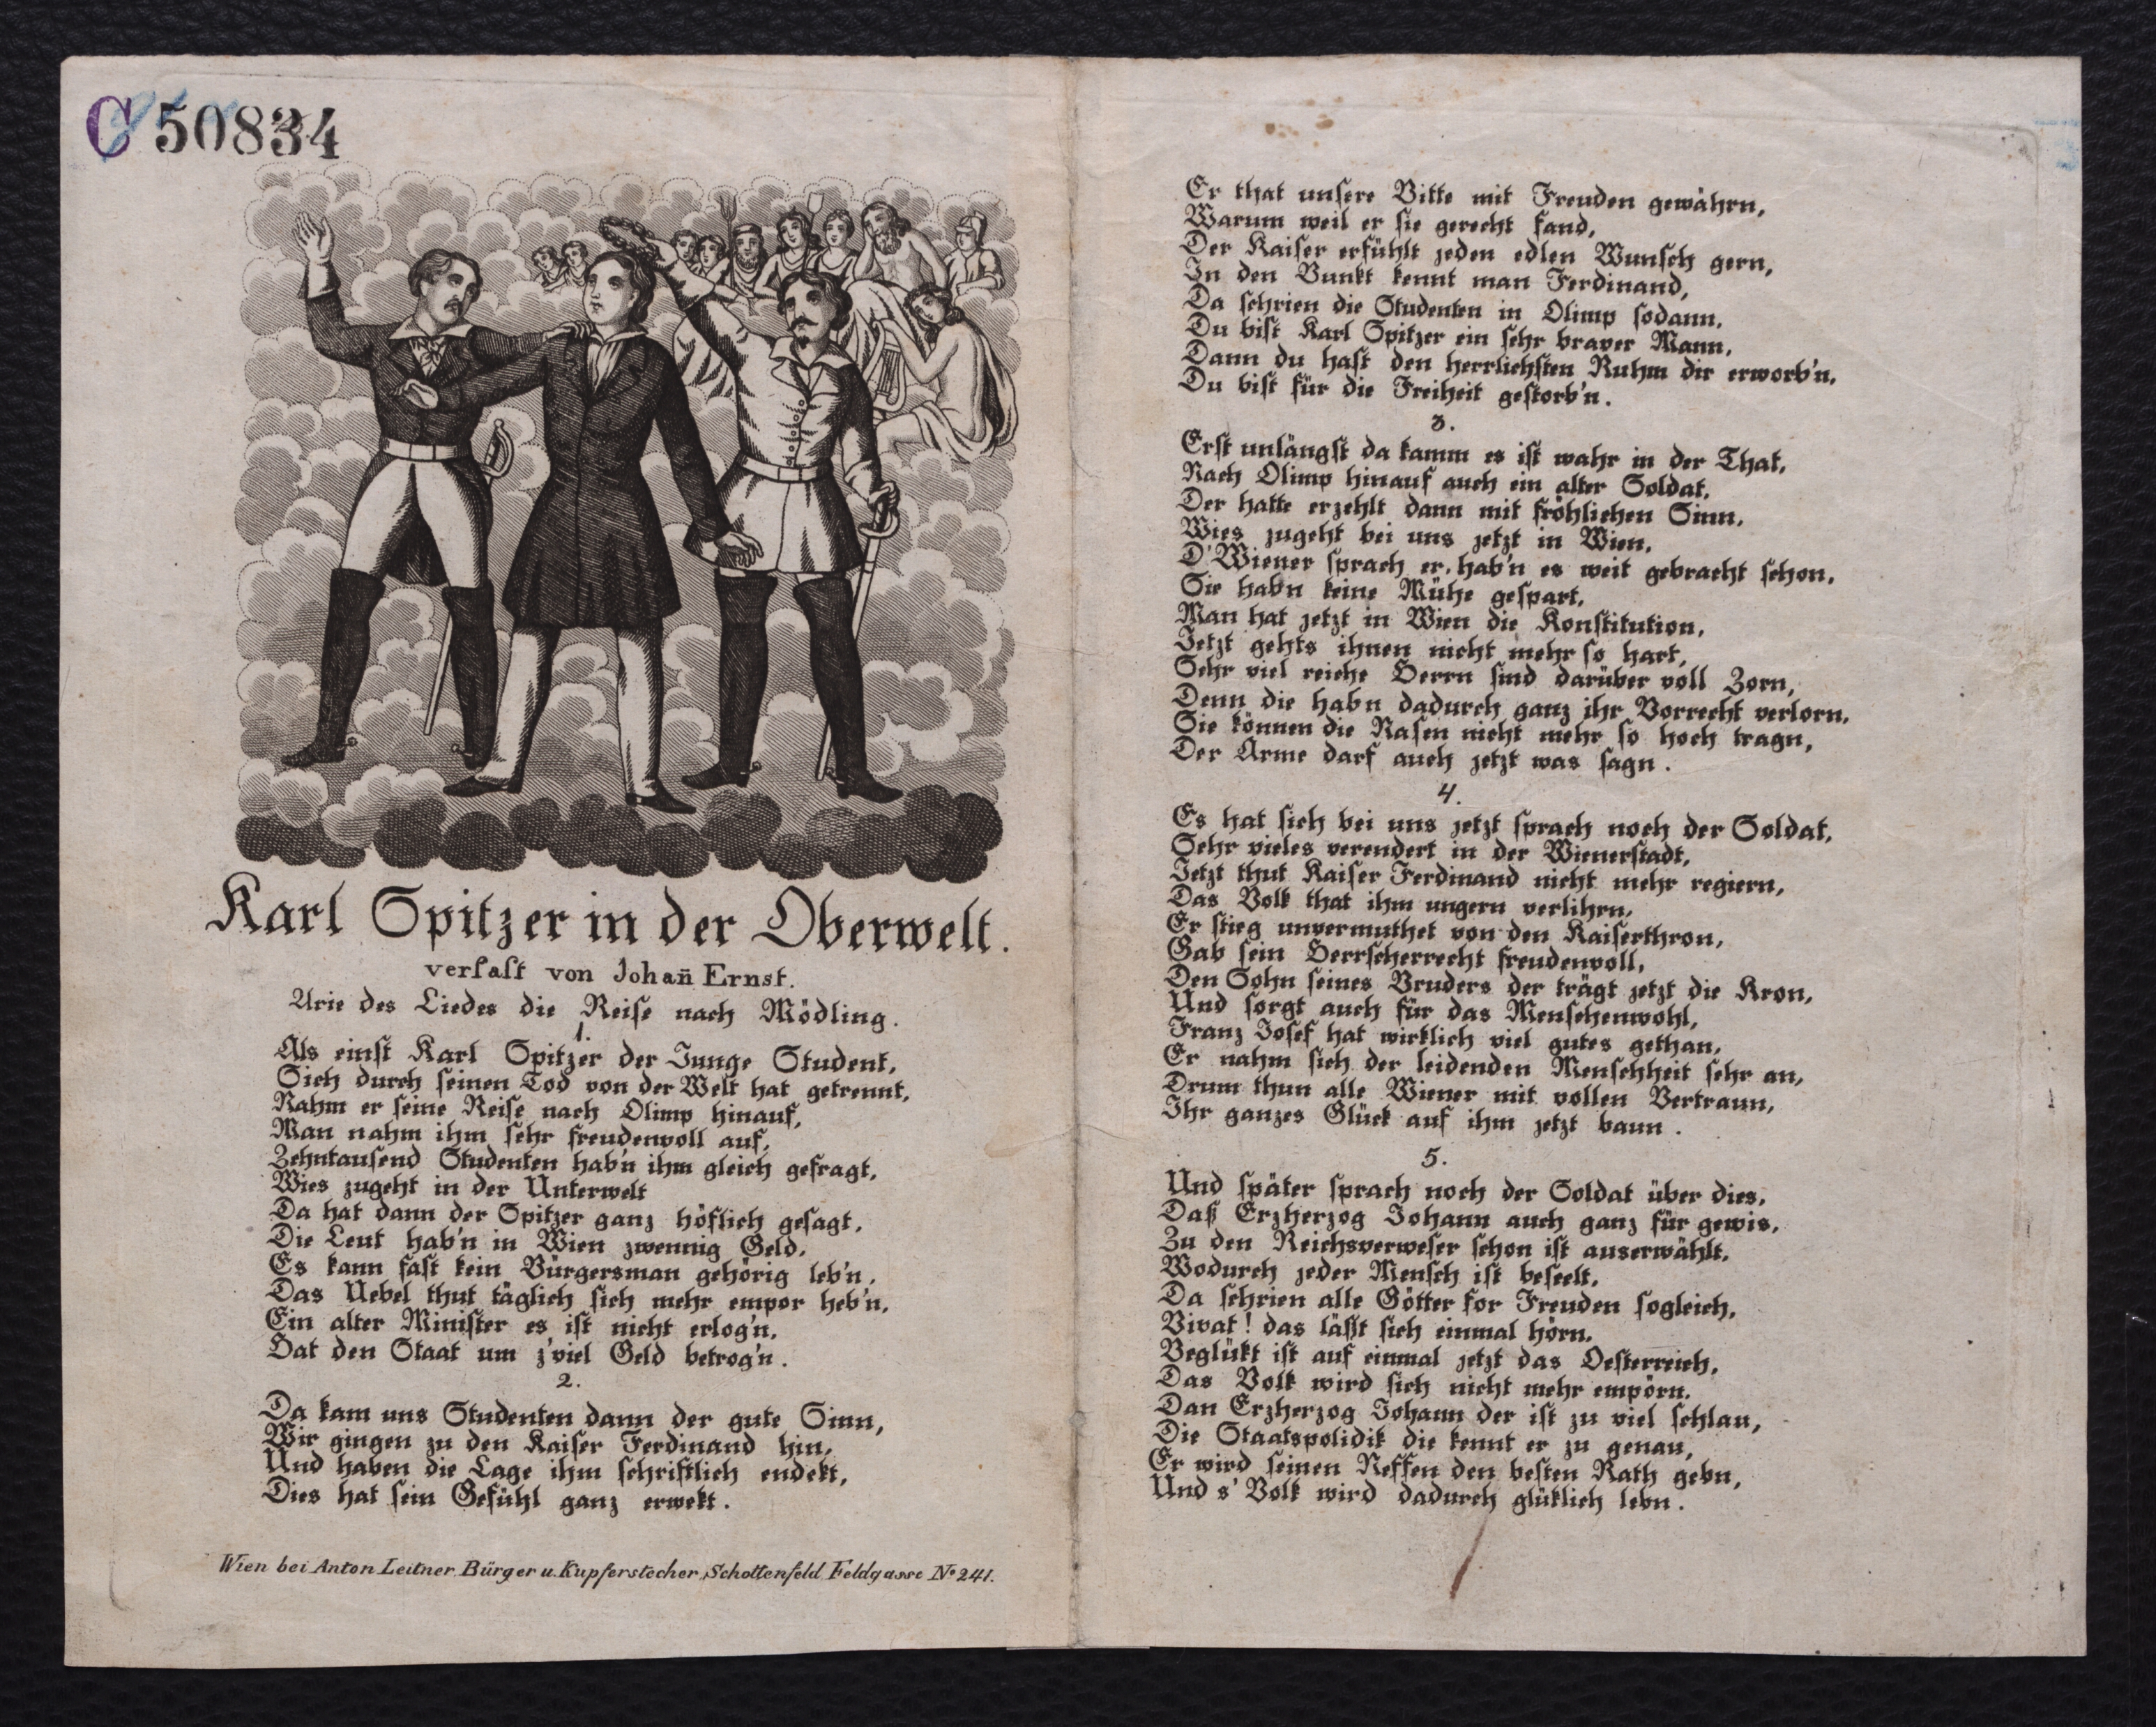 C 50834
Karl Spitzer in der Oberwelt.
verfaſt von Johañ Ernst.
Arie des Liedes die Reiſe nach Mödling.
1.
Als einſt Karl Spitzer der Junge Student,
Sich durch ſeinen Tod von der Welt hat getrennt,
Nahm er ſeine Reiſe nach Olimp hinauf,
Man nahm ihm ſehr freudenvoll auf,
Zehntauſend Studenten hab'n ihm gleich gefragt,
Wies zugeht in der Unterwelt
Da hat dann der Spitzer ganz höflich geſagt,
Die Leut hab'n in Wien zwennig Geld,
Es kann faſt kein Bürgersman gehörig leb'n,
Das Uebel thut täglich ſich mehr empor heb'n,
Ein alter Miniſter es iſt nicht erlog'n,
Hat den Staat um z'viel Geld betrog'n.
2.
Da kam uns Studenten dann der gute Sinn,
Wir gingen zu den Kaiſer Ferdinand hin,
Und haben die Lage ihm ſchriftlich endekt,
Dies hat ſein Gefühl ganz erwekt.
Wien bei Anton Leitner Bürger u. Kupferstecher, Schottenfeld Feldgasse No 241.
Er that unſere Bitte mit Freuden gewährn,
Warum weil er ſie gerecht fand,
Der Kaiſer erfühlt jeden edlen Wunſch gern,
In den Bunkt kennt man Ferdinand,
Da ſchrien die Studenten in Olimp ſodann,
Du biſt Karl Spitzer ein ſehr braver Mann,
Dann du haſt den herrlichſten Ruhm dir erworb'n,
Du biſt für die Freiheit geſtorb'n.
3.
Erſt unlängſt da kamm es iſt wahr in der That,
Nach Olimp hinauf auch ein alter Soldat,
Der hatte erzehlt dann mit fröhlichen Sinn,
Wies zugeht bei uns jetzt in Wien,
D'Wiener ſprach er, hab'n es weit gebracht ſchon,
Sie hab'n keine Mühe geſpart,
Man hat jetzt in Wien die Konſtitution,
Jetzt gehts ihnen nicht mehr ſo hart,
Sehr viel reiche Herrn ſind darüber voll Zorn,
Denn die hab'n dadurch ganz ihr Vorrecht verlorn,
Sie können die Naſen nicht mehr ſo hoch tragn,
Der Arme darf auch jetzt was ſagn.
4.
Es hat ſich bei uns jetzt ſprach noch der Soldat,
Sehr vieles verendert in der Wienerſtadt,
Jetzt thut Kaiſer Ferdinand nicht mehr regiern,
Das Volk that ihm ungern verlihrn,
Er ſtieg unvermuthet von den Kaiſerthron,
Gab ſein Herrſcherrecht freudenvoll,
Den Sohn ſeines Bruders der trägt jetzt die Kron,
Und ſorgt auch für das Menſchenwohl,
Franz Joſef hat wirklich viel gutes gethan,
Er nahm ſich der leidenden Menſchheit ſehr an,
Drum thun alle Wiener mit vollen Vertraun,
Ihr ganzes Glück auf ihm jetzt baun.
5.
Und ſpäter ſprach noch der Soldat über dies,
Daß Erzherzog Johann auch ganz für gewis,
Zu den Reichsverweſer ſchon iſt auserwählt,
Wodurch jeder Menſch iſt beſeelt,
Da ſchrien alle Götter for Freuden ſogleich,
Vivat! das läßt ſich einmal hörn,
Beglükt iſt auf einmal jetzt das Oeſterreich,
Das Volk wird ſich nicht mehr empörn,
Dan Erzherzog Johann der iſt zu viel ſchlau,
Die Staatspolidik die kennt er zu genau,
Er wird ſeinen Neffen den beſten Rath gebn,
Und s' Volk wird dadurch glüklich lebn.